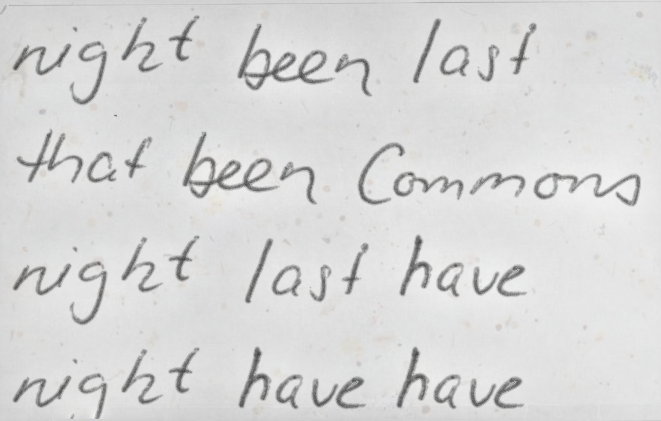 night been last
that been Commons
night last have
night have have